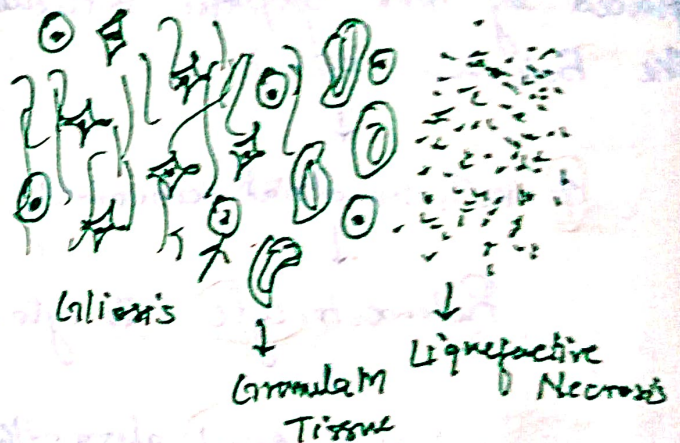 Gliosis
Granulam
Tissue
Liquefactive
Necrosis